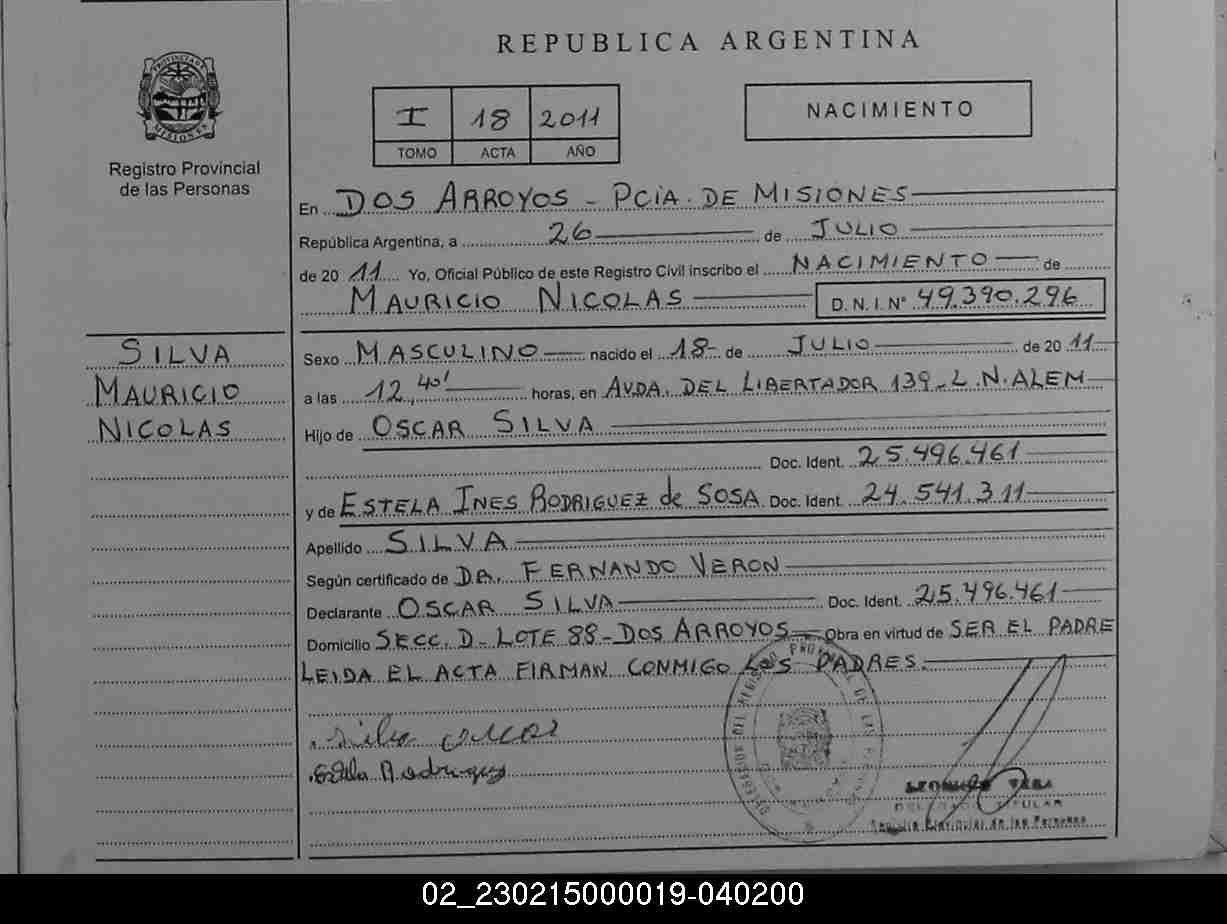 REPUBLICA ARGENTINA
PROVINCIA DE
MISIONES
Registro Provincial
de las Personas
I 18 2011
TOMO ACTA AÑO
NACIMIENTO
En DOS ARROYOS - PCIA. DE MISIONES
República Argentina, a 26 de JULIO
de 20 11 Yo, Oficial Público de este Registro Civil inscribo el NACIMIENTO de
MAURICIO NICOLAS D. N. I. Nº 49.390.296
SILVA
MAURICIO
NICOLAS
Sexo MASCULINO nacido el 18 de JULIO de 20 11
a las 12,40' horas, en AVDA. DEL LIBERTADOR 139 - L. N. ALEM
Hijo de OSCAR SILVA
Doc. Ident. 25.496.461
y de ESTELA INES RODRIGUEZ de SOSA Doc. Ident. 24.541.311
Apellido SILVA
Según certificado de DR. FERNANDO VERON
Declarante OSCAR SILVA Doc. Ident. 25.496.461
Domicilio SECC. D - LOTE 88 - DOS ARROYOS Obra en virtud de SER EL PADRE
LEIDA EL ACTA FIRMAN CONMIGO LOS PADRES.
Silva Oscar
Estela Rodriguez
VERA
TITULAR
Provincial de las Personas
02_230215000019-040200